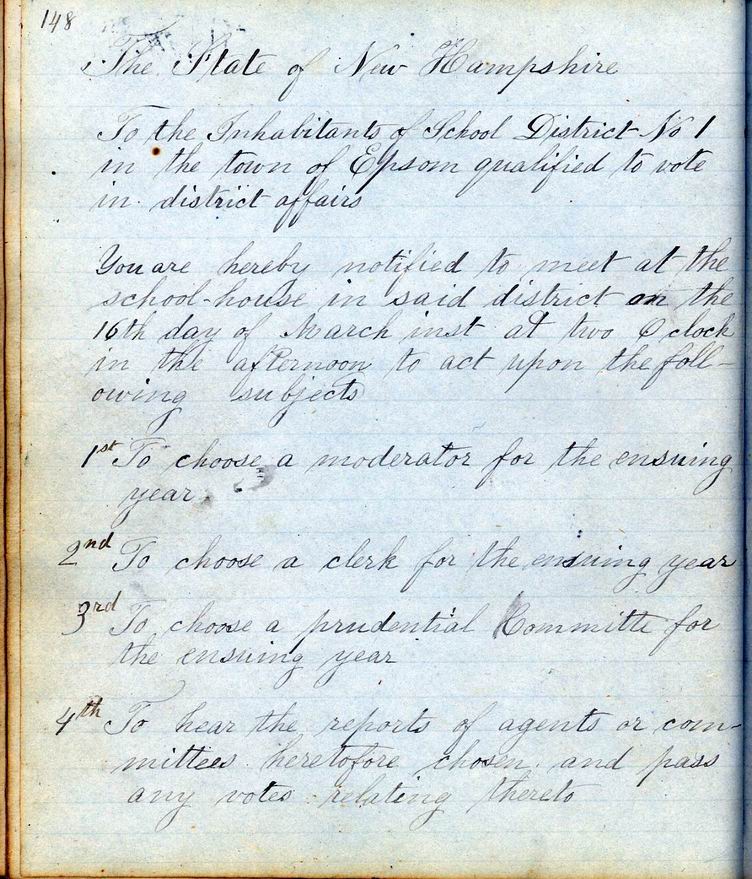 148
The State of New Hampshire
To the Inhabitants of School District No 1
in the town of Epsom qualified to vote
in district affairs
You are hereby notified to meet at the
school-house in said district on the
16th day of March inst at two O clock
in the afternoon to act upon the foll-
owing subjects
1st To choose a moderator for the ensuing
year
2nd To choose a clerk for the ensuing year
3rd To choose a prudential Committe for
the ensuing year
4th To hear the reports of agents or com-
mittees heretofore chosen and pass
any votes relating thereto